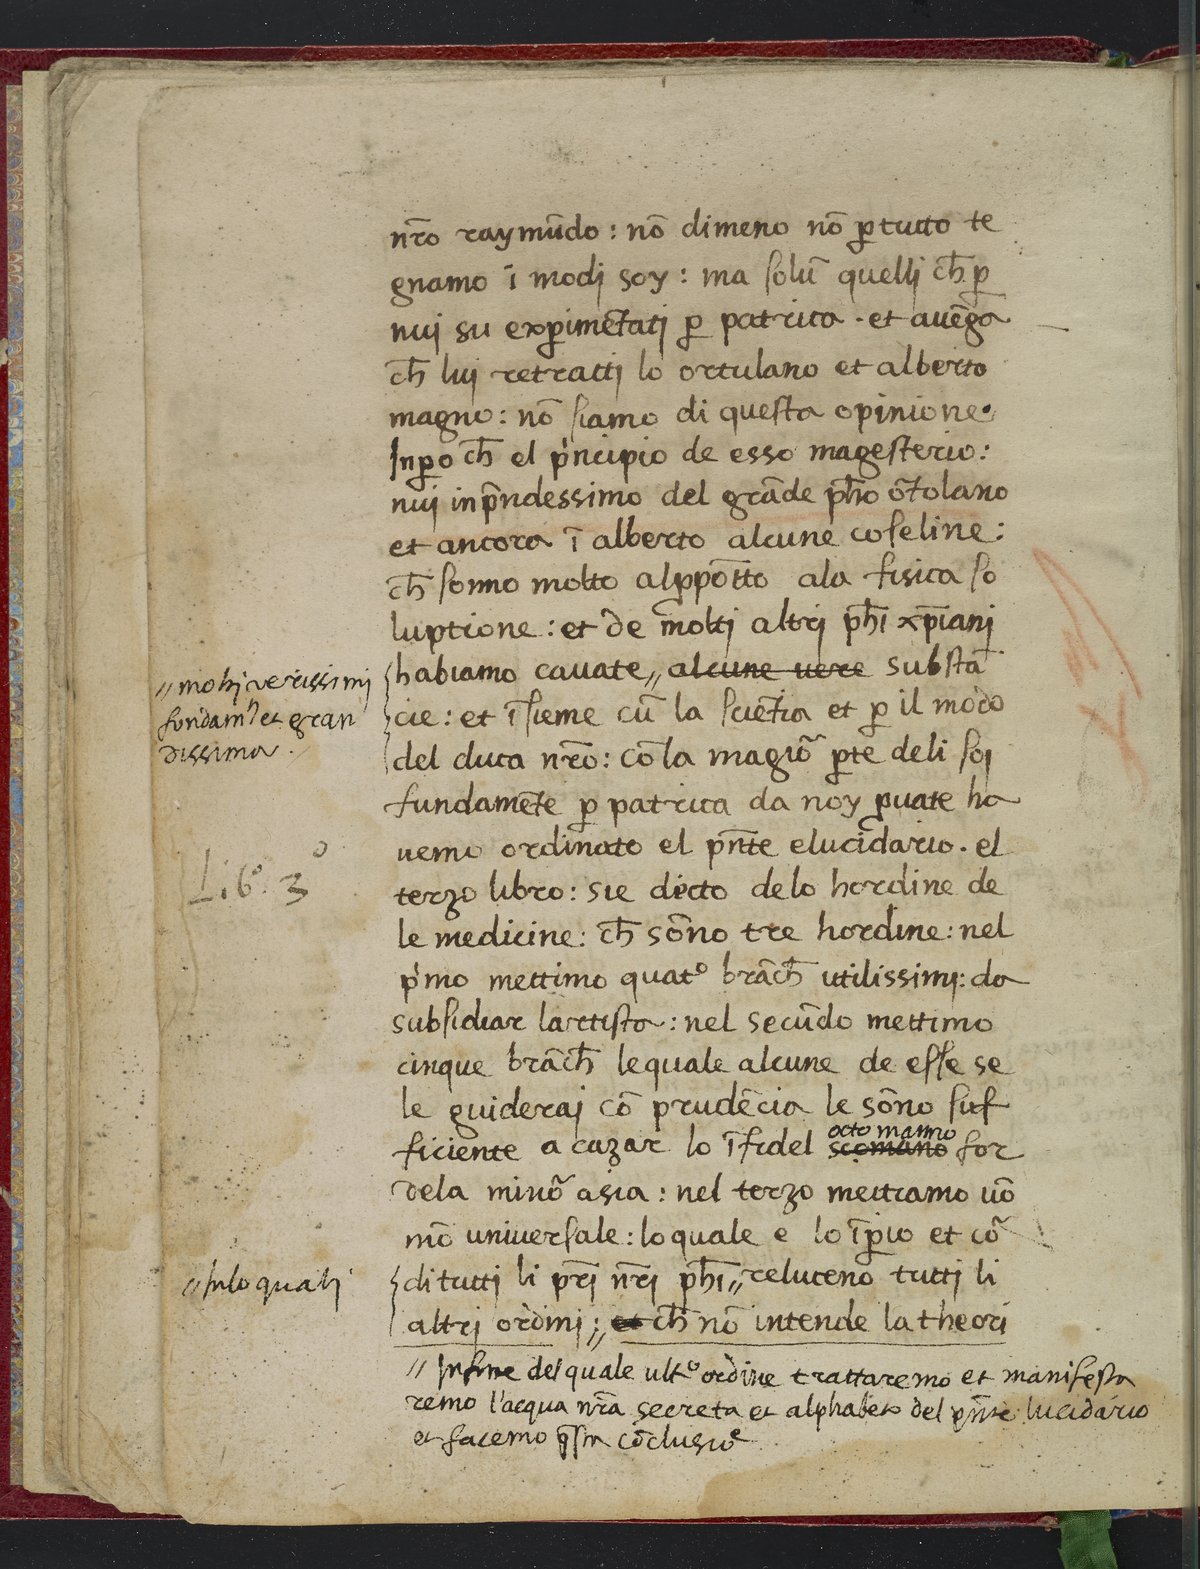 nr̄o raymūdo : nō dimeno nō ꝑtutto te
gnamo ī modj soy : ma solū quellj ch̄ ꝑ
nuj su exꝑimētatj ꝑ patrica . et auēga
ch̄ luj retrattj lo ortulano et alberto
magno : nō siamo di questa opinione .
Inꝑo ch̄ el pⁱncipio de esso magesterio :
nuj inp̄ndessimo del grāde ph̄o ōtolano
et ancora ī alberto alcune coseline :
ch̄ sonno molto alppōtto ala fisica so
luptione : et de molti altrj ph̄i xp̄ianj
habiamo cauate,, alcune uere substā
//moltj uerissimj
fondamⁱ et gran
dissima .
cie : et īsieme cū la sciētia et ꝑ il modo
del duca nr̄o : cō la magiō ꝑte deli soj
fundamēte ꝑ patrica da noy ꝓuate ha
uemo ordinato el pn̄te elucidario . el
Lib.º 3º
terzo libro : sie dicto delo hordine de
le medicine : ch̄ sōno tre hordine : nel
pⁱmo mettimo quatº brāch̄ utilissimj : da
subsidiar lartista : nel secūdo mettimo
cinque brāch̄ lequale alcune de esse se
le guideraj cō prudēcia le sōno suf
ficiente a cazar lo īfidel scomano for
octo manno
dela minō asia : nel terzo mettiamo uō
mō uniuersale : loquale e lo īꝑio et cō
di tutti li prj̄ nr̄j ph̄i,, reluceno tutti li
//Inlo qualj
altrj ordinj ;,, et ch̄ nō intende la theori
// Infine del quale ultº ordine trattaremo et manifesta
remo l'acqua nr̄a secreta et alphabeto del pn̄te lucidario
et facemo q̄sta cōclusioe